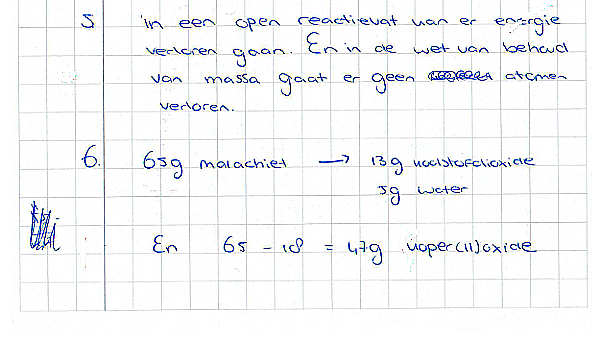 5 in een open reactievat kan er energie
verloren gaan. En in de wet van behoud
van massa gaat er geen atomen
verloren.
6. 65g malachiet → 13g koolstofdioxide
5g water
En 65 - 18 = 47g koper(II)oxide